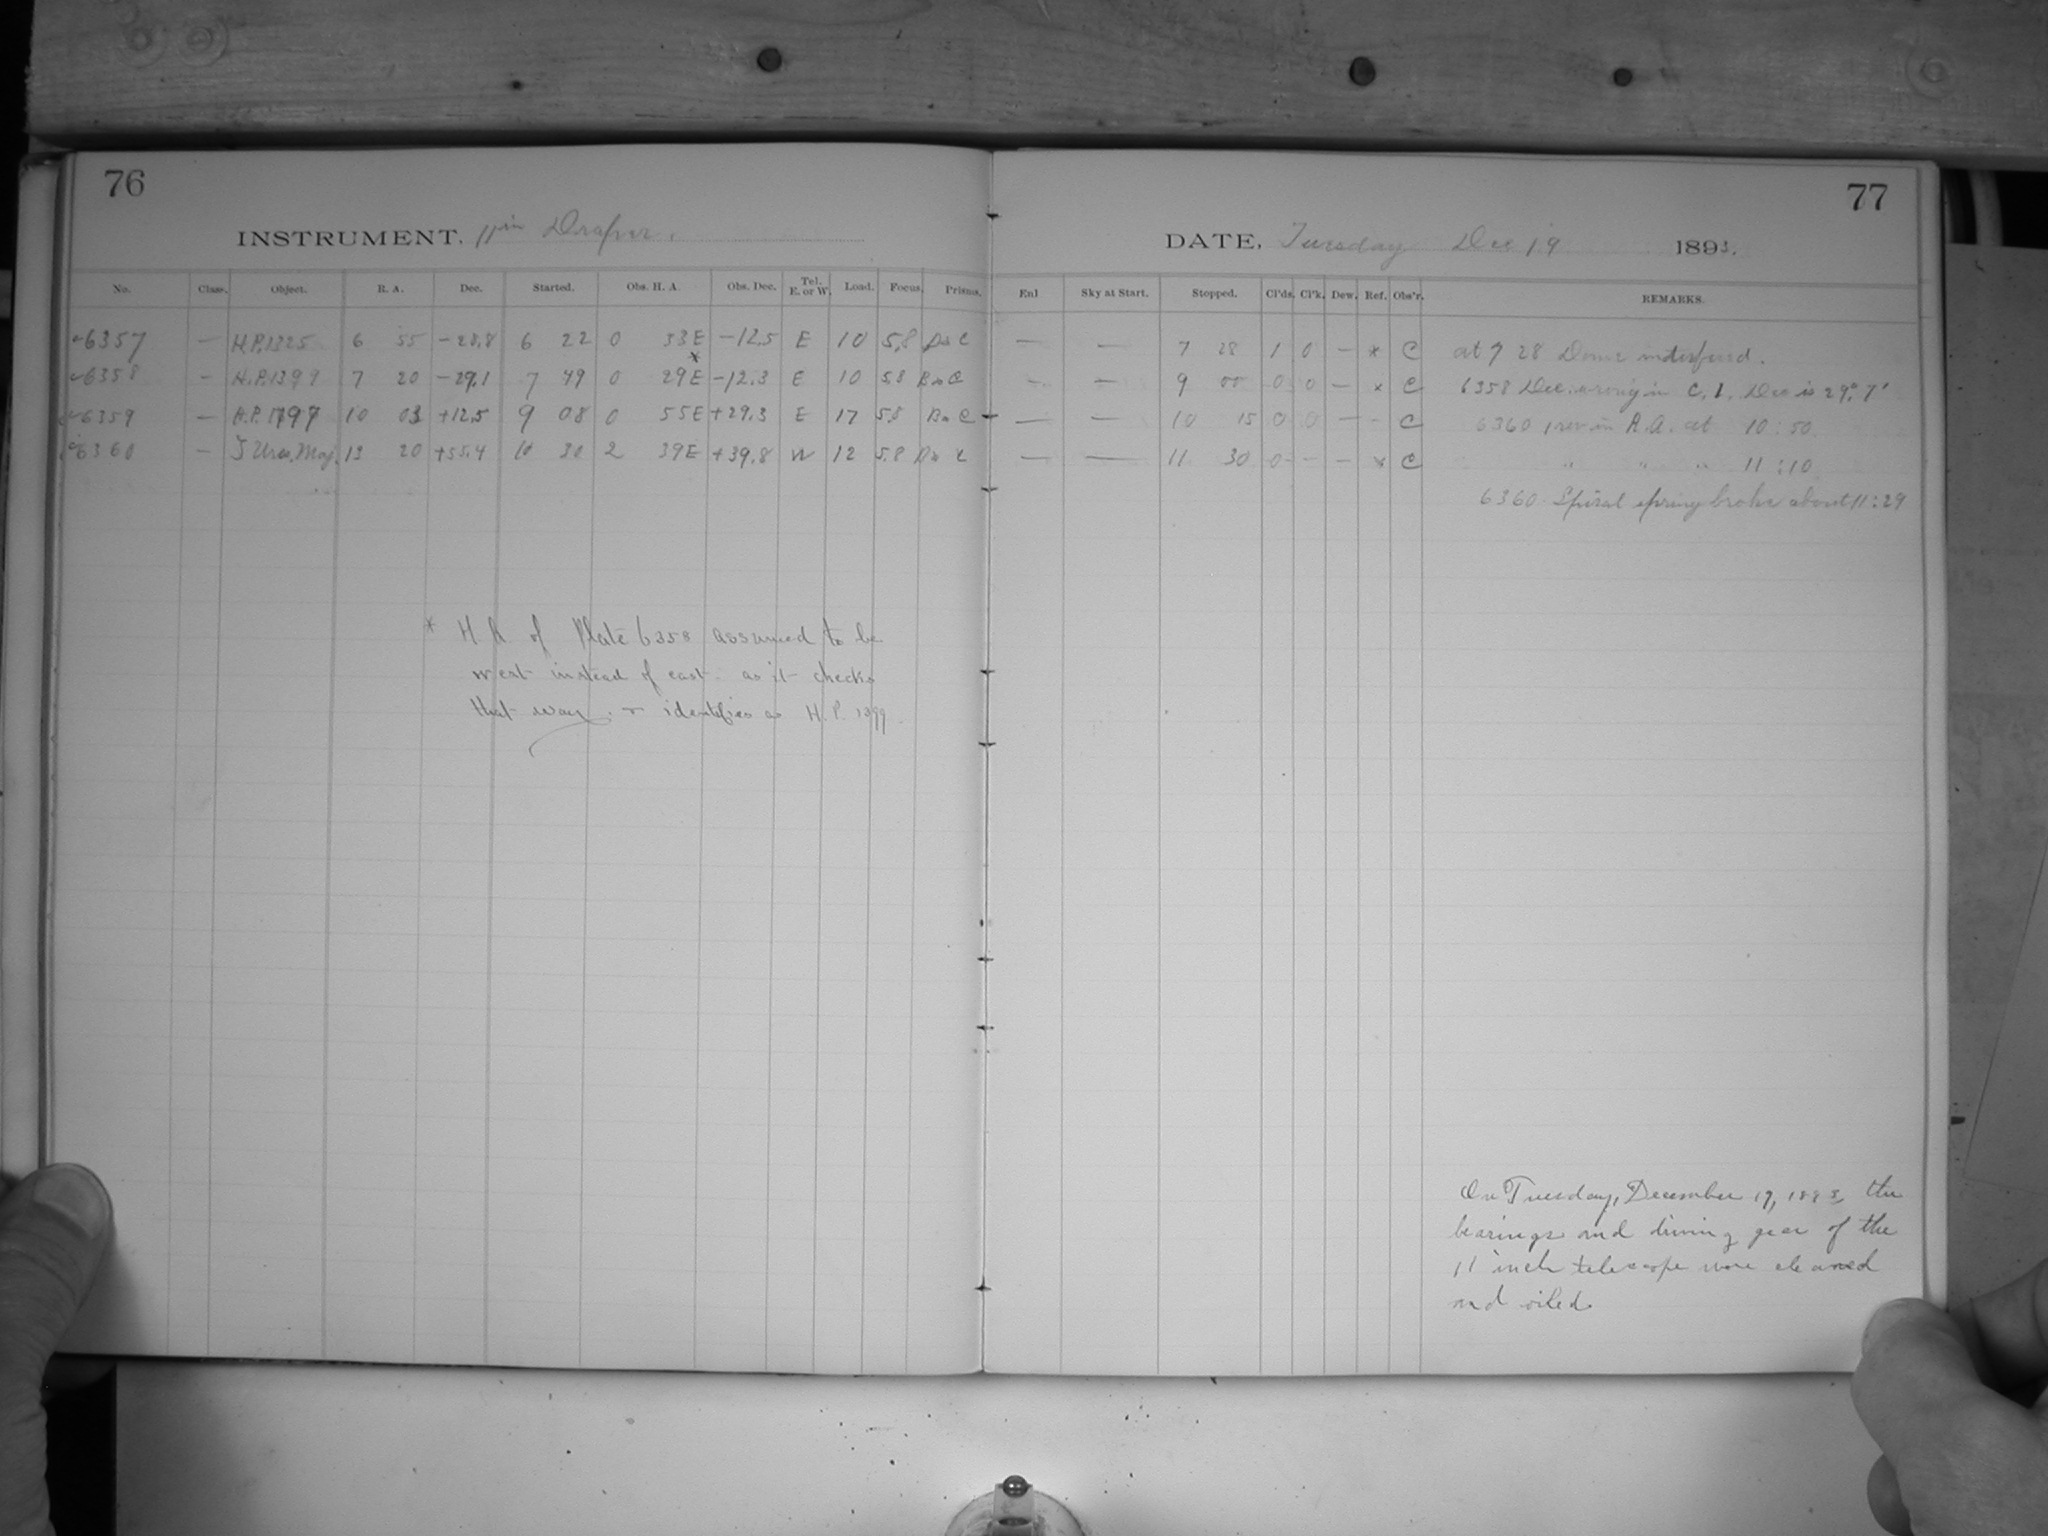 76
INSTRUMENT. 11in Draper.
No. Class. Object. R. A. Dec. Started. Obs. H. A. Obs. Dec. Tel. E. or W. Load. Focus. Prisms.
6357 — H.P.1325 6 55 −28.8 6 22 0 33E −12.5 E 10 5.8
6358 — H.P.1399 7 20 −29.1 7 49 0 29E* −12.3 E 10 5.8
6359 — H.P.1797 10 03 +12.5 9 08 0 55E +29.3 E 17 5.8
6360 — ζ Urs. Maj. 13 20 +55.4 10 30 2 39E +39.8 W 12 5.8
* H A of Plate 6358 assumed to be
west instead of east as it checks
that way. & identifies as H.P. 1399
77
DATE, Tuesday Dec 19 1893.
Enl Sky at Start. Stopped. Cl'ds. Cl'k. Dew. Ref. Obs'r. REMARKS.
— — 7 28 1 0 — * C at 7 28 Dome interfered.
— — 9 00 0 0 — x C 6358 Dec. wrong in C. I. Dec is 29° 7'
— — 10 15 0 0 — - C 6360 1 rev in R.A. at 10:50.
— — 11 30 0 - — x C " " " 11:10
6360 Spiral spring broke about 11:29
On Tuesday, December 19, 1893, the
bearings and driving gear of the
11 inch telescope were cleaned
and oiled